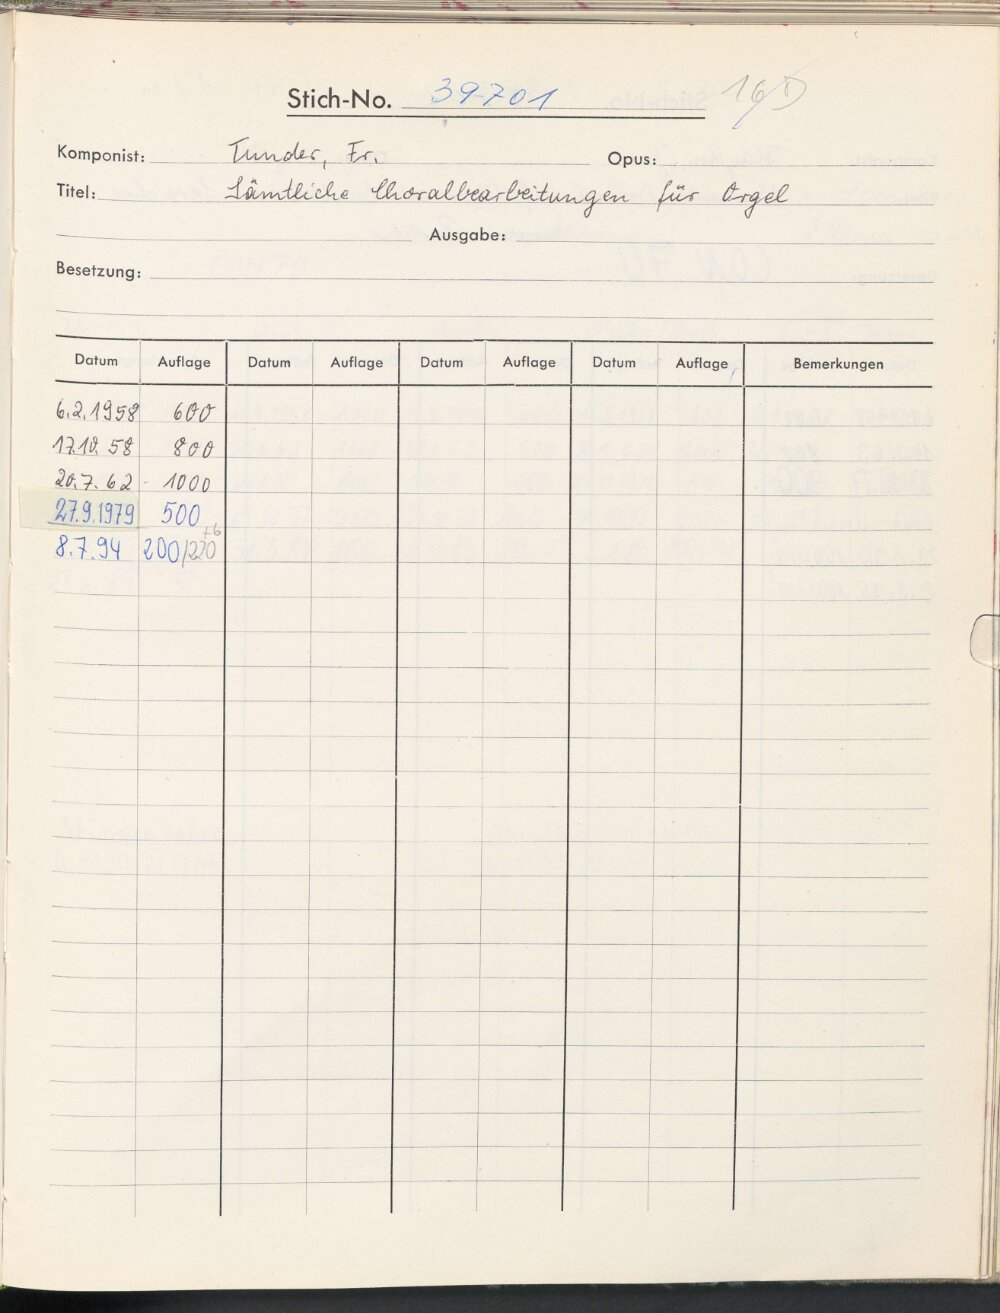 Stich-No. 39701
Komponist: Tunder, Fr. Opus:
Titel: Sämtliche Choralbearbeitungen für Orgel
Ausgabe:
Besetzung:
Datum Auflage Datum Auflage Datum Auflage Datum Auflage Bemerkungen
6.2.1958 600
17.10.58 800
20.7.62 - 1000
27.9.1979 500
+6
8.7.94 200/220